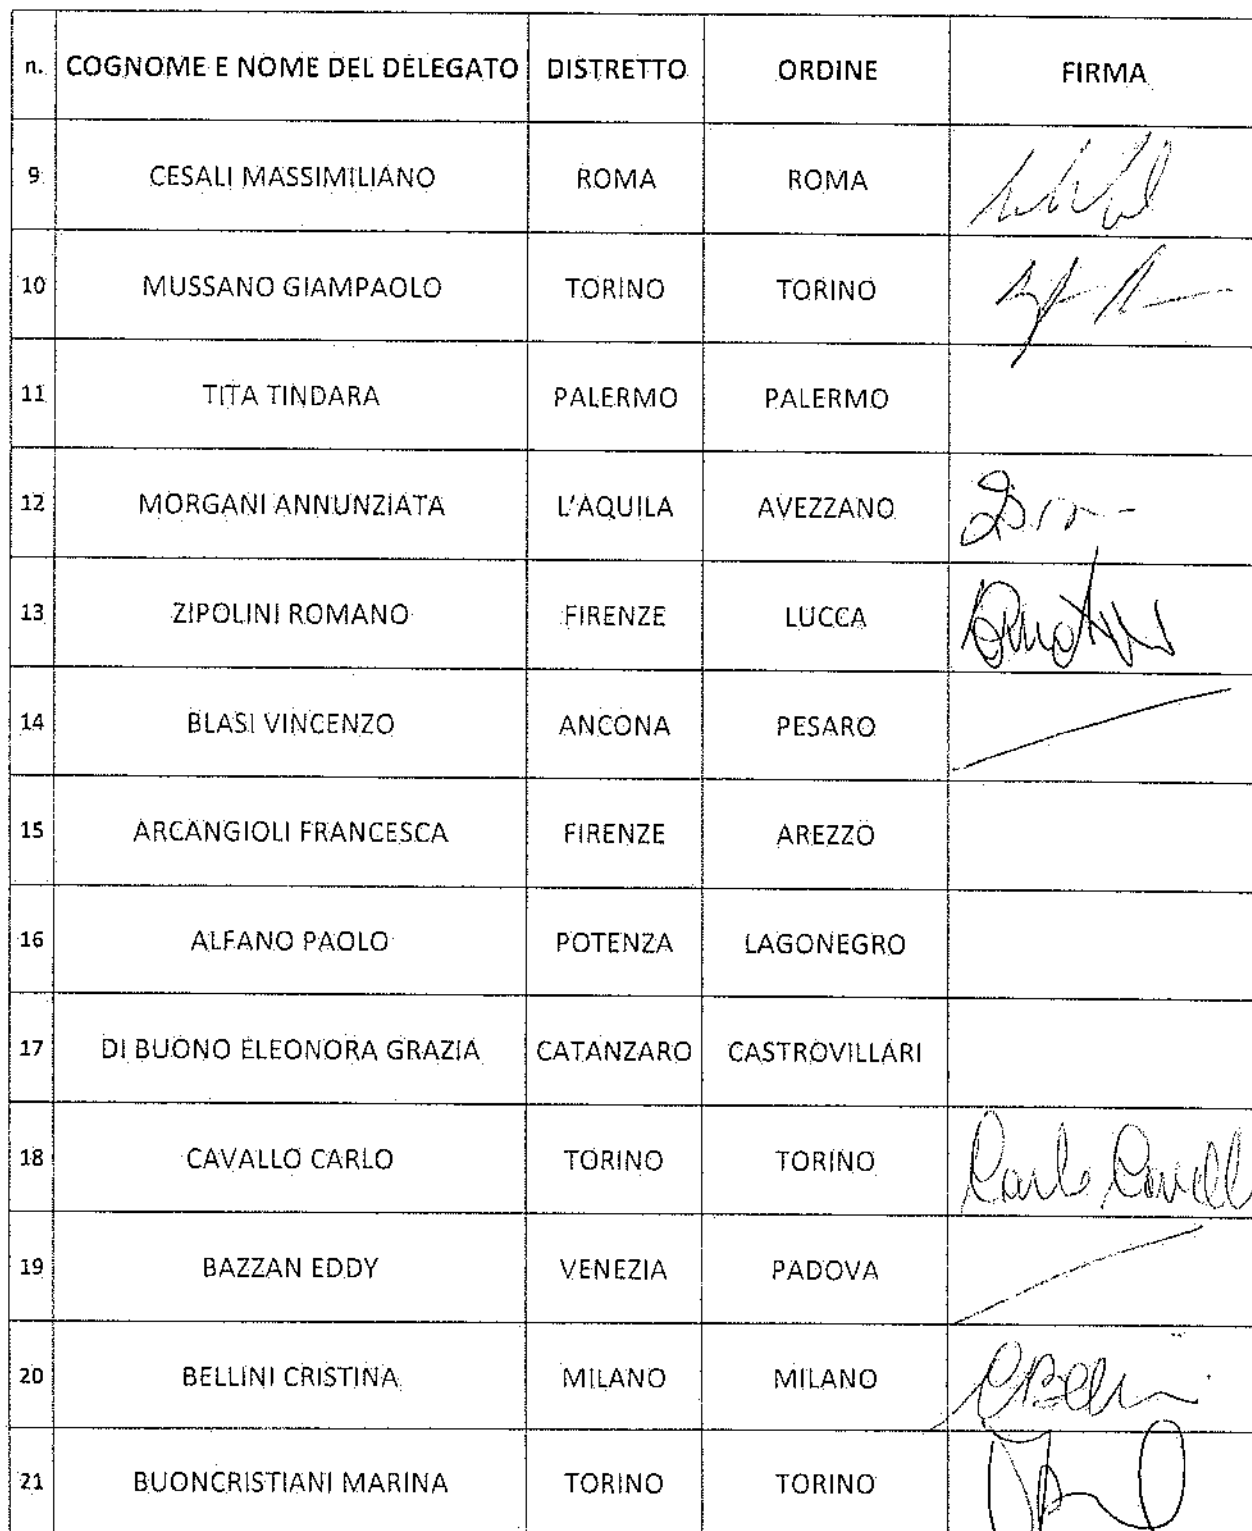 n. COGNOME E NOME DEL DELEGATO DISTRETTO ORDINE FIRMA
9 CESALI MASSIMILIANO ROMA ROMA
10 MUSSANO GIAMPAOLO TORINO TORINO
11 TITA TINDARA PALERMO PALERMO
12 MORGANI ANNUNZIATA L'AQUILA AVEZZANO
13 ZIPOLINI ROMANO FIRENZE LUCCA
14 BLASI VINCENZO ANCONA PESARO
15 ARCANGIOLI FRANCESCA FIRENZE AREZZO
16 ALFANO PAOLO POTENZA LAGONEGRO
17 DI BUONO ELEONORA GRAZIA CATANZARO CASTROVILLARI
18 CAVALLO CARLO TORINO TORINO Carlo Cavall
19 BAZZAN EDDY VENEZIA PADOVA
20 BELLINI CRISTINA MILANO MILANO CBellini
21 BUONCRISTIANI MARINA TORINO TORINO